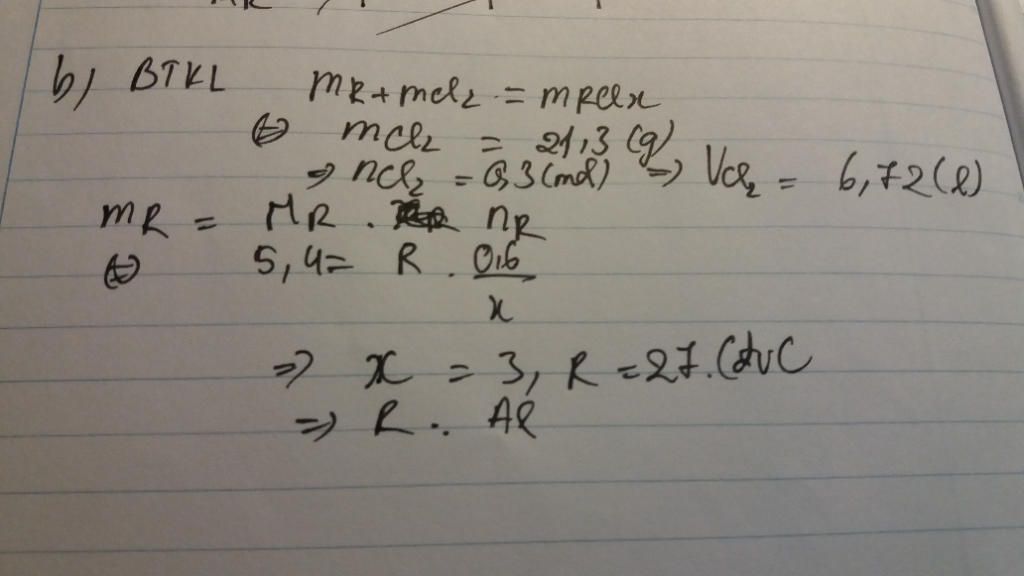 b) BTKL mR + mCl₂ = mRClx
⇔ mCl₂ = 21,3 (g)
⇒ nCl₂ = 0,3 (mol) ⇒ VCl₂ = 6,72 (l)
mR = MR . nR
⇔ 5,4 = R . 0,6/x
⇒ x = 3, R = 27. (đvC
⇒ R : Al